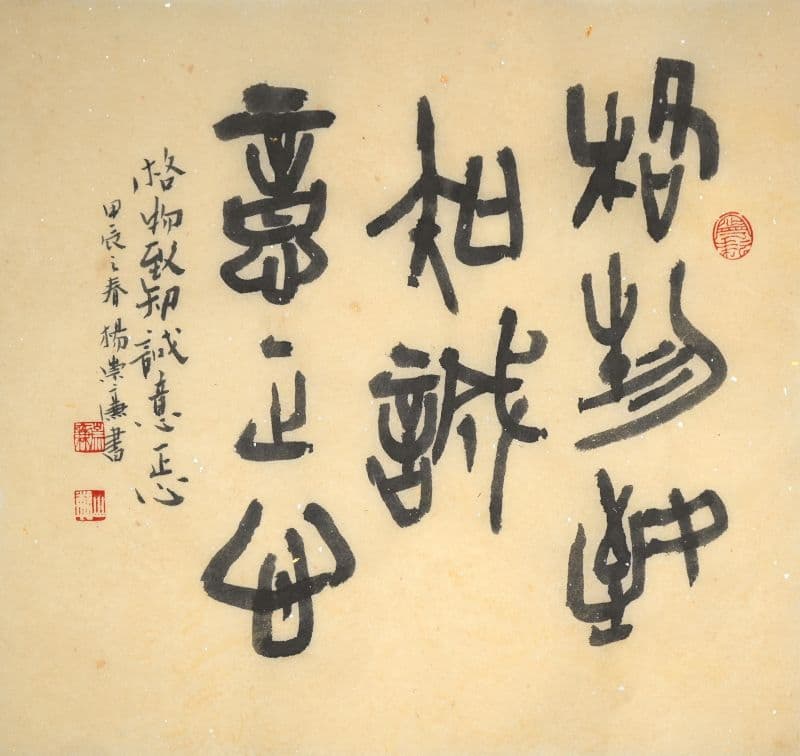 格物致
知誠
意正心
格物致知誠意正心
甲辰之春楊崇廉書